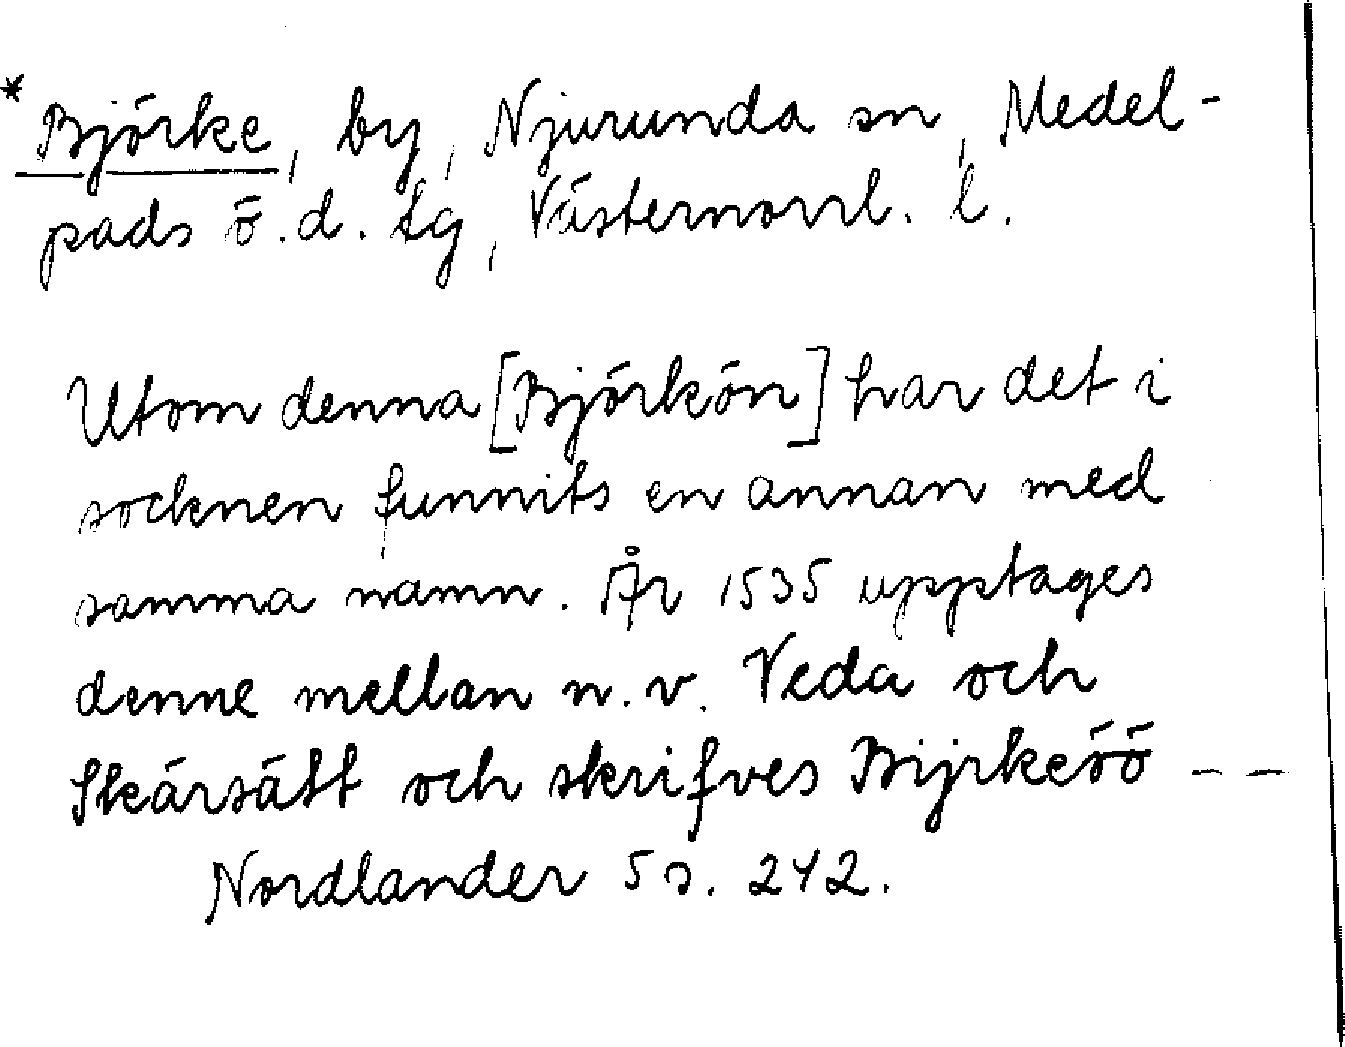 *Björke, by, Njurunda sn, Medel-
pads ö.d. tg, Västernorrl. l.
Utom denna [Björkön] har det i
socknen funnits en annan med
samma namn. År 1535 upptages
denne mellan n.v. Veda och
Skärsätt och skrifves Bijrkeöö - -
Nordlander 5 s. 242.